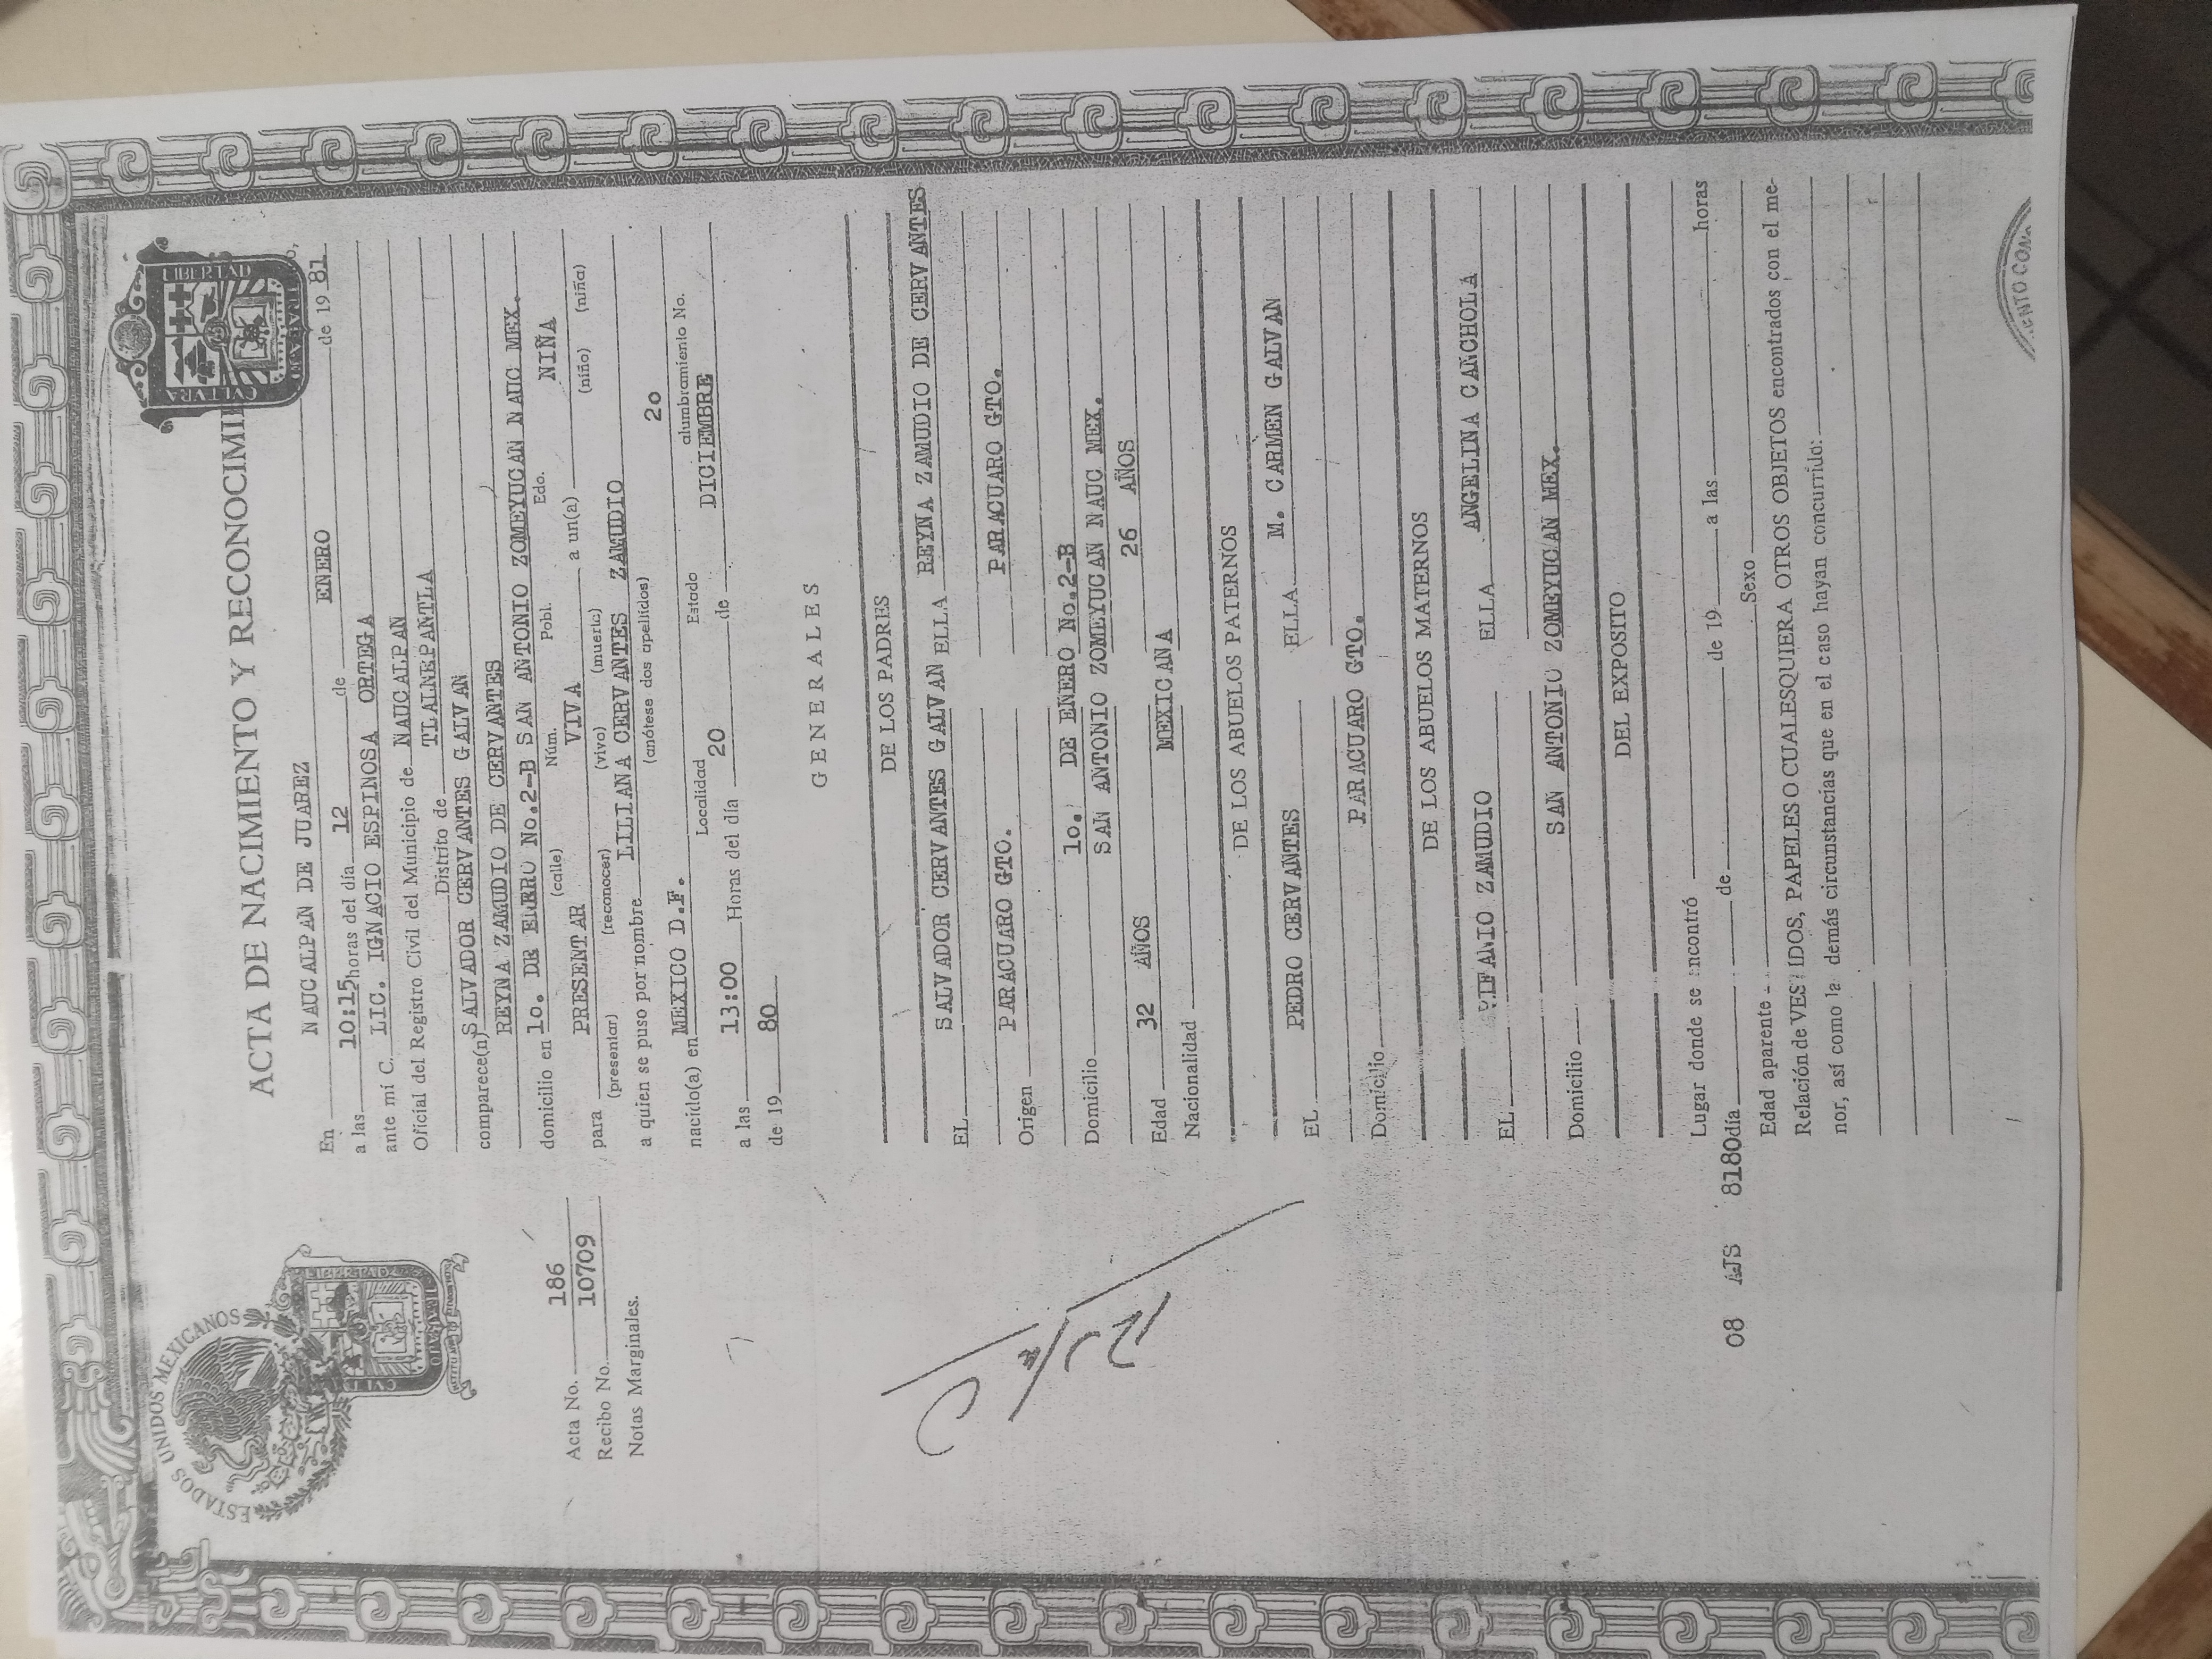 ESTADOS UNIDOS MEXICANOS
LIBERTAD
CVLTVRA
TRABAJO
ACTA DE NACIMIENTO Y RECONOCIMI
NAUCALPAN DE JUAREZ
En
a las 10:15 horas del día 12 de ENERO de 19 81
ante mí C. LIC. IGNACIO ESPINOSA ORTEGA
Oficial del Registro Civil del Municipio de NAUCALPAN
Distrito de TLALNEPANTLA
comparece(n) SALVADOR CERVANTES GALVAN
REYNA ZAMUDIO DE CERVANTES
domicilio en 1o. DE ENERO No.2-B SAN ANTONIO ZOMEYUCAN NAUC MEX.
(calle) Núm. Pobl. Edo.
para PRESENTAR VIVA a un(a) NIÑA
(presentar) (reconocer) (vivo) (muerto) (niño) (niña)
a quien se puso por nombre LILIANA CERVANTES ZAMUDIO
(anótese dos apelidos) 2o
nacido(a) en MEXICO D.F.
Localidad Estado alumbramiento No.
a las 13:00 Horas del día 20 de DICIEMBRE
de 19 80
Acta No. 186
Recibo No. 10709
Notas Marginales.
GENERALES
DE LOS PADRES
EL SALVADOR CERVANTES GALVAN ELLA REYNA ZAMUDIO DE CERVANTES
Origen PARACUARO GTO. PARACUARO GTO.
1o. DE ENERO No.2-B
Domicilio SAN ANTONIO ZOMEYUCAN NAUC MEX.
Edad 32 AÑOS 26 AÑOS
Nacionalidad MEXICANA
DE LOS ABUELOS PATERNOS
EL PEDRO CERVANTES ELLA M. CARMEN GALVAN
Domicilio PARACUARO GTO.
DE LOS ABUELOS MATERNOS
EL ZAMUDIO ELLA ANGELINA CANCHOLA
Domicilio SAN ANTONIO ZOMEYUCAN MEX.
DEL EXPOSITO
Lugar donde se encontró
08 AJS 8180 día de de 19 a las horas
Edad aparente Sexo
Relación de VESTIDOS, PAPELES O CUALESQUIERA OTROS OBJETOS encontrados con el me-
nor, así como la demás circunstancias que en el caso hayan concurrido: